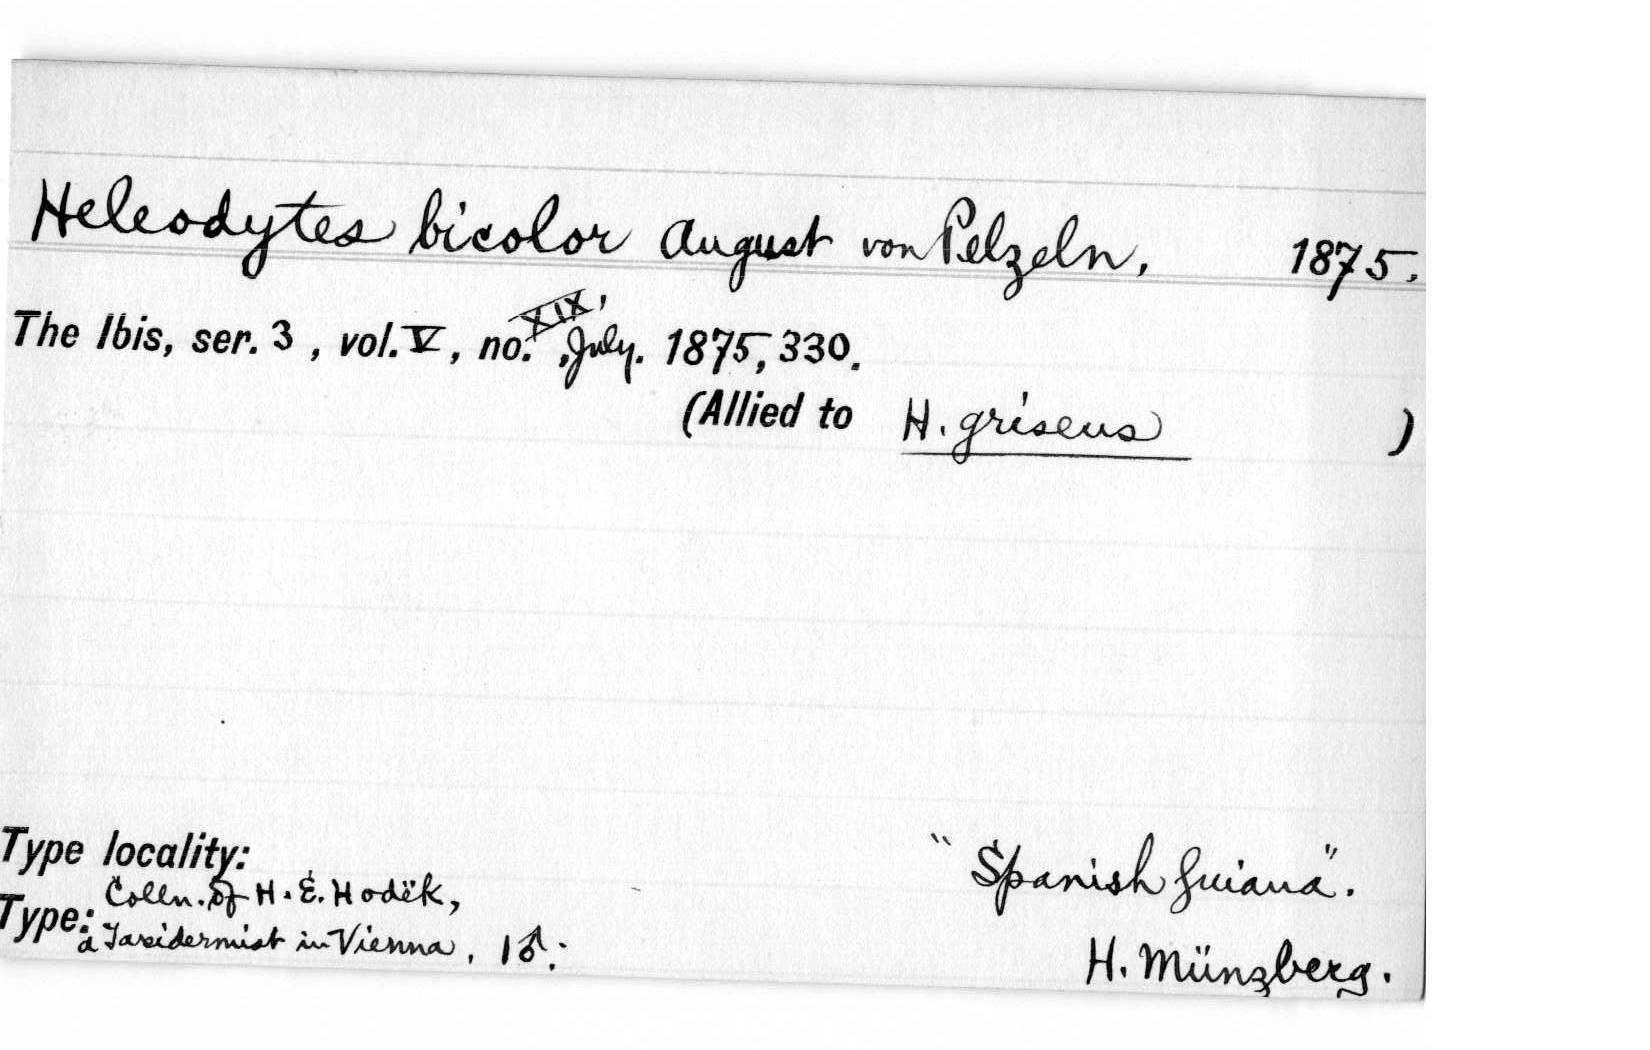 Heleodytes bicolor August von Pelzeln, 1875.
The Ibis, ser. 3, vol. V, no. XIX, July. 1875, 330.
(Allied to H. griseus )
Type locality: "Spanish Guiana".
Type: Colln. of H. E. Hodëk,
a Taxidermist in Vienna, 1♂. H. Münzberg.